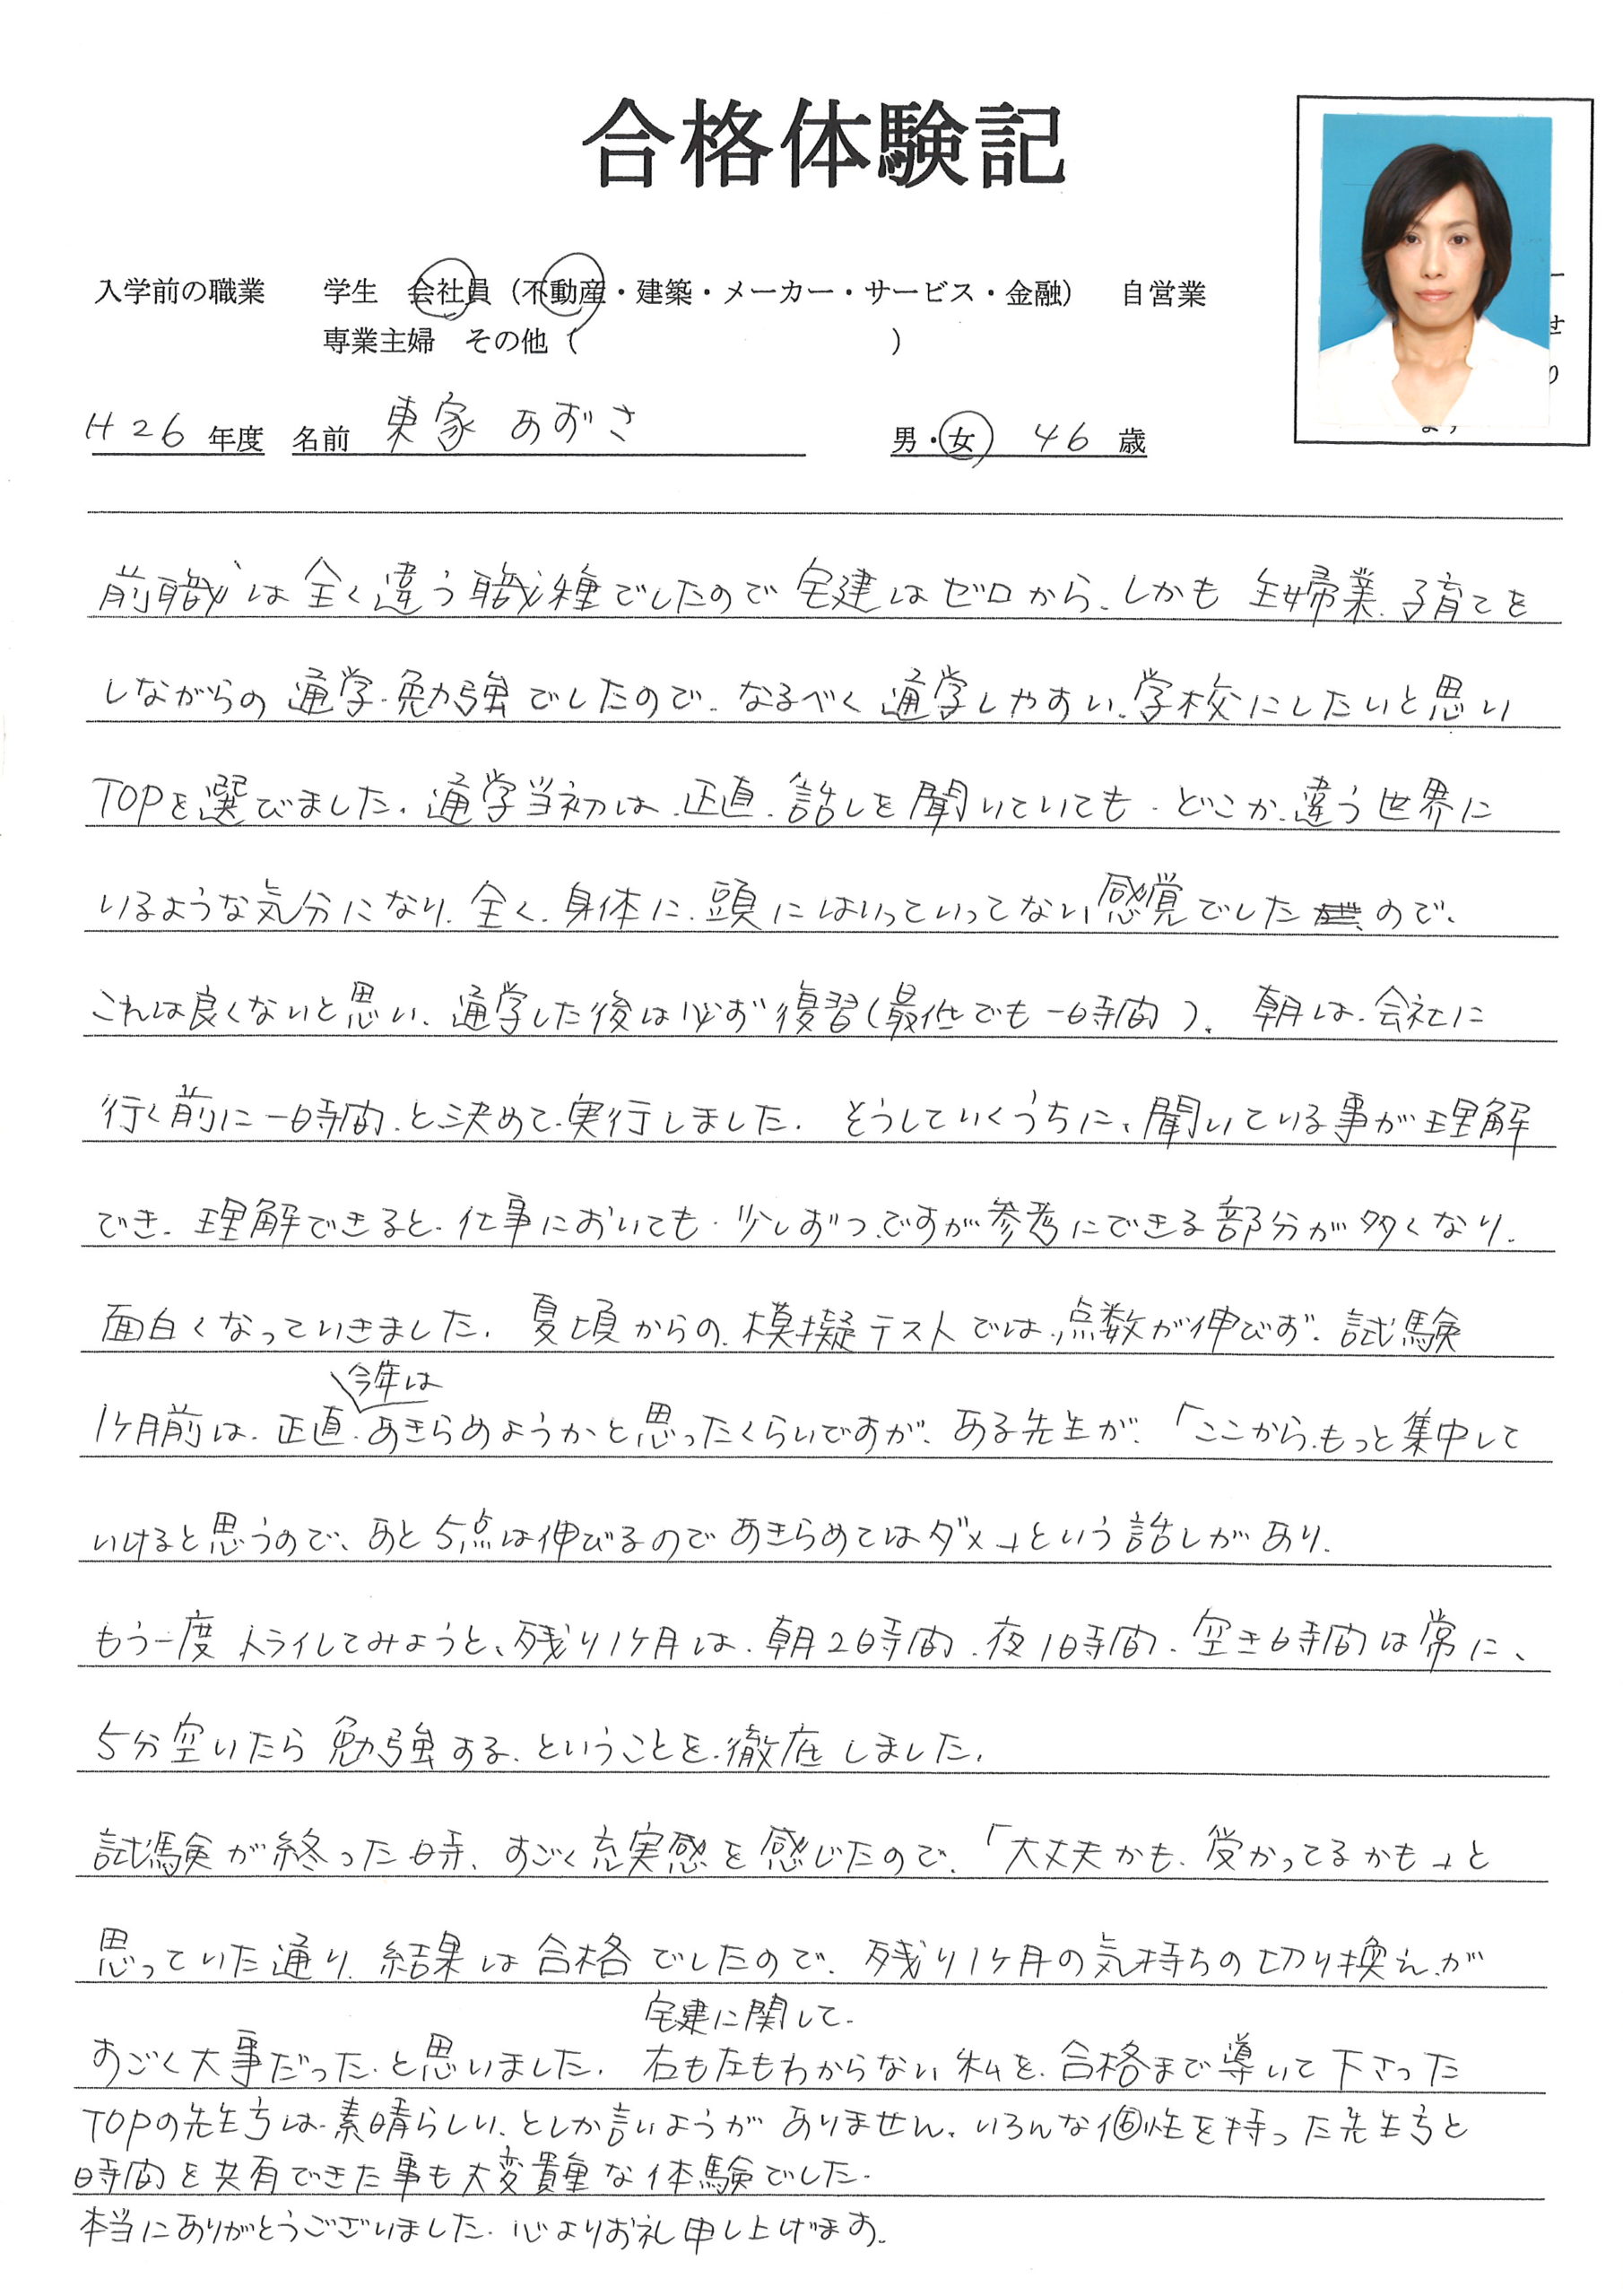 合格体験記
入学前の職業　学生　会社員（不動産・建築・メーカー・サービス・金融）　自営業
専業主婦　その他（　　　）
せ
り
ます
H26 年度　名前　東家 あずさ　男・女　46 歳
前職は全く違う職種でしたので宅建はゼロから、しかも主婦業、子育てを
しながらの通学、勉強でしたので、なるべく通学しやすい、学校にしたいと思い
TOPを選びました。通学当初は、正直、話しを聞いていても、どこか、違う世界に
いるような気分になり、全く、身体に、頭にはいっていってない感覚でしたので、
これは良くないと思い、通学した後は必ず復習（最低でも一時間）、朝は、会社に
行く前に一時間、と決めて、実行しました。そうしていくうちに、聞いている事が理解
でき、理解できると、仕事においても、少しずつ、ですが参考にできる部分が多くなり、
面白くなっていきました。夏頃からの、模擬テストでは、点数が伸びず、試験
今年は
1ヶ月前は、正直、あきらめようかと思ったくらいですが、ある先生が、「ここから、もっと集中して
いけると思うので、あと5点は伸びるのであきらめてはダメ」という話しがあり、
もう一度トライしてみようと、残り1ヶ月は、朝2時間、夜1時間、空き時間は常に、
5分空いたら勉強する、ということを、徹底しました。
試験が終った時、すごく充実感を感じたので、「大丈夫かも、受かってるかも」と
思っていた通り、結果は合格でしたので、残り1ヶ月の気持ちの切り換え、が
宅建に関して、
すごく大事だった、と思いました。右も左もわからない私を、合格まで導いて下さった
TOPの先生方は、素晴らしい、としか言いようがありません。いろんな個性を持った先生方と
時間を共有できた事も大変貴重な体験でした。
本当にありがとうございました。心よりお礼申し上げます。